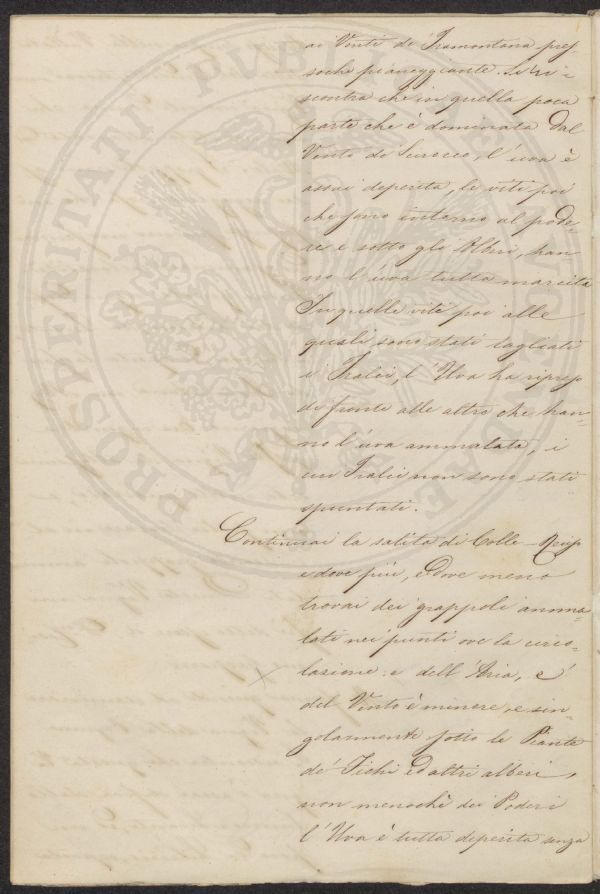 ai Venti di Tramontana pres-
soche pianeggiante. Si ri-
scontra che in quella poca
parte che è dominata dal
Vento di Scirocco, l'uva è
assai deperita, le viti poi
che sono intorno al pode-
re e sotto gli Alberi, han-
no l'uva tutta marcita
In quelle viti poi alle
quali sono stati tagliati
i Tralci, l'Uva ha ripreso
di fronte alle altre che han-
no l'uva ammalata, i
cui Tralci non sono stati
spuntati.
Continuai la salita di Colle
e dove più, e dove meno
trovai dei grappoli amma-
lati nei punti ove la circo-
lazione e dell'Aria, e
del Vento è minore, e sin-
golarmente sotto le Piante
de' Fichi ed altri alberi,
non menochè dei Poderi
l'Uva è tutta deperita senza
PROSPERITATI PUBLICAE